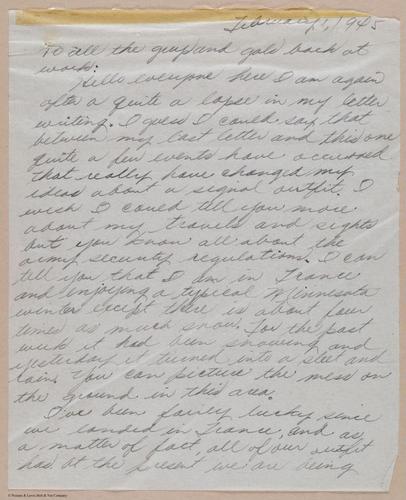 February 1, 1945
To all the guys and gals back at
work:
Hello everyone here I am again
after a quite a lapse in my letter
writing. I guess I could say that
between my last letter and this one
quite a few events have occurred
that really have changed my
ideas about a signal outfit. I
wish I could tell you more
about my travels and sights
but you know all about the
army security regulations. I can
tell you that I am in France
and enjoying a typical Minnesota
winter except there is about four
times as much snow. For the past
week it had been snowing and
yesterday it turned into a sleet and
rain. You can picture the mess on
the ground in this area.
I've been fairly lucky since
we landed in France, and as
a matter of fact, all of our outfit
has. At the present we are being